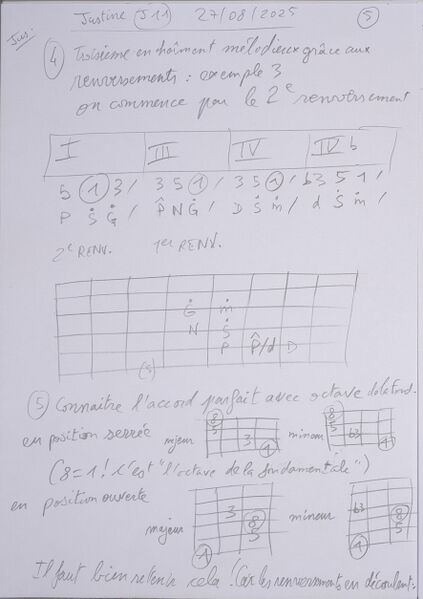 Justine (J11) 27/08/2025 (5)
Jus:
(4) Troisième enchaîment mélodieux grâce aux
renversements : exemple 3
on commence par le 2e renversement
I III IV IV b
5 (1) 3 / 3 5 (1) / 3 5 (1) / b3 5 1 /
P Ṡ Ġ / P̂ N Ġ / D Ṡ ṁ / d Ṡ ṁ /
2e RENV. 1er RENV.
Ġ ṁ
N Ṡ
P P̂/d D
(5)
(5) Connaitre l'accord parfait avec octave de la fond.
en position serrée majeur 8 5 3 (1) mineur 8 5 b3 (1)
(8=1 ! c'est "l'octave de la fondamentale")
en position ouverte
majeur 3 8 5 (1) mineur b3 8 5 (1)
Il faut bien retenir cela ! Car les renversements en découlent.